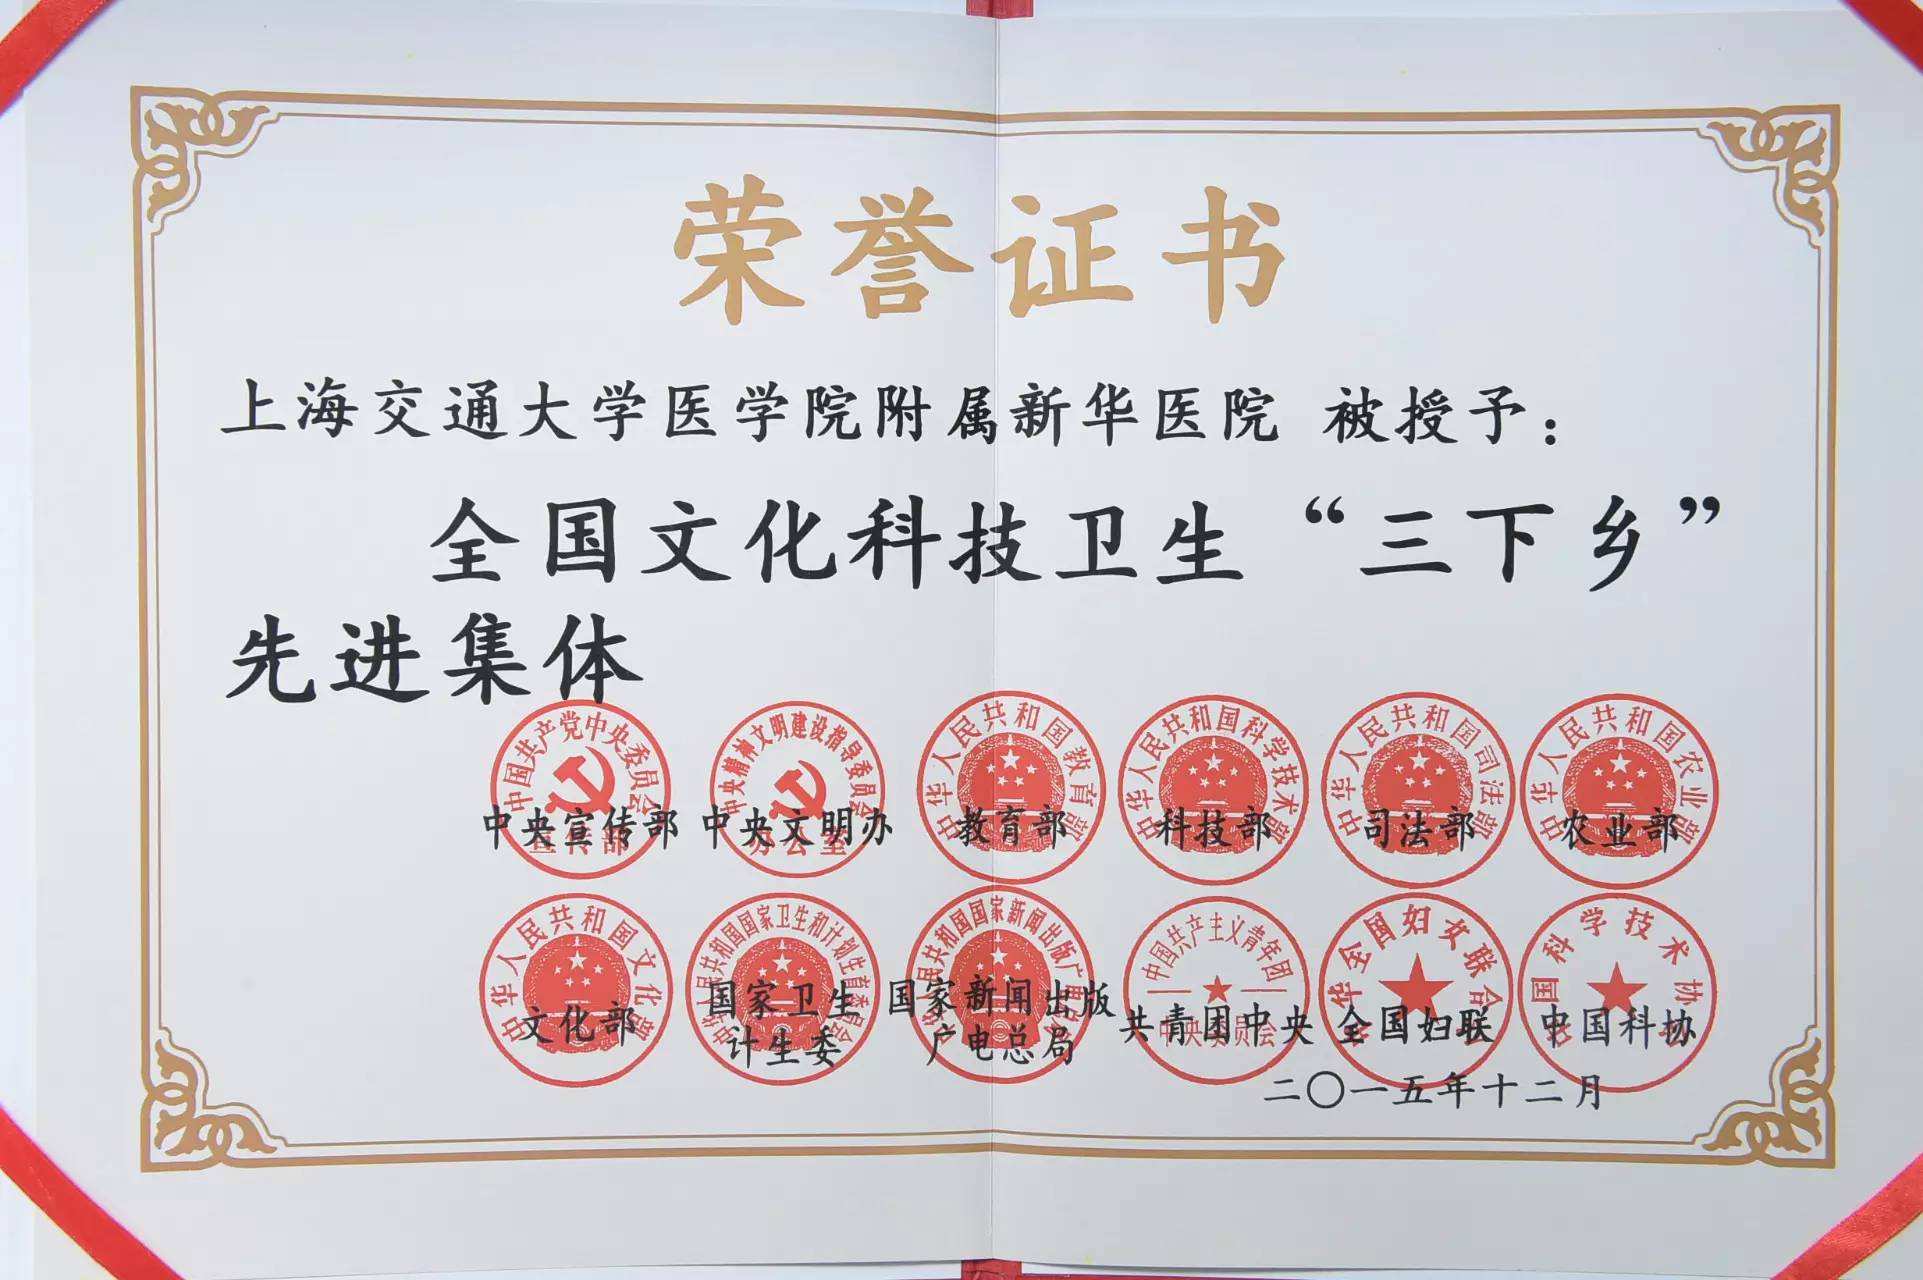 荣誉证书
上海交通大学医学院附属新华医院 被授予：
全国文化科技卫生“三下乡”
先进集体
中国共产党中央委员会
宣传部
中央宣传部
中央精神文明建设指导委员会
办公室
中央文明办
中华人民共和国教育部
教育部
中华人民共和国科学技术部
科技部
中华人民共和国司法部
司法部
中华人民共和国农业部
农业部
中华人民共和国文化部
文化部
中华人民共和国国家卫生和计划生育委员会
国家卫生
计生委
中华人民共和国国家新闻出版广电总局
国家新闻出版
广电总局
中国共产主义青年团
中央委员会
共青团中央
中华全国妇女联合会
全国妇联
中国科学技术协会
中国科协
二〇一五年十二月